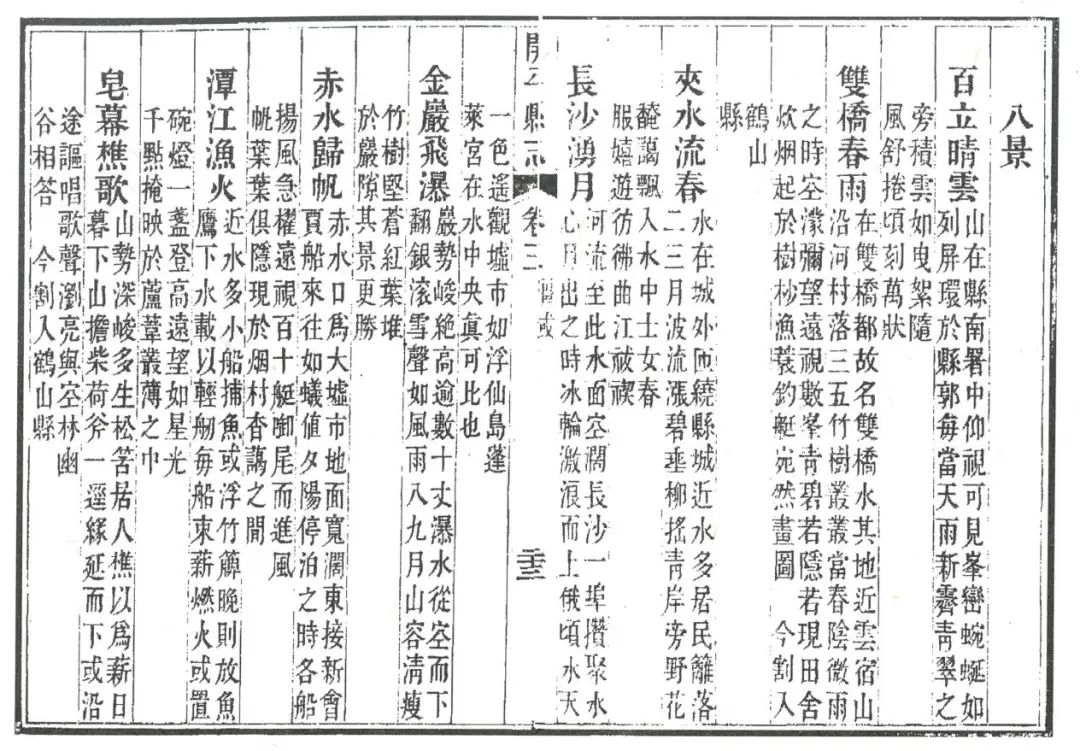 八景
百立晴雲
山在縣南署中仰視可見峯巒蜿蜒如
列屏環於縣郭每當天雨新霽青翠之
旁積雲如曳絮隨
風舒捲頃刻萬狀
雙橋春雨
在雙橋都故名雙橋水其地近雲宿山
沿河村落三五竹樹叢叢當春陰微雨
之時空濛彌望遠視數峯青碧若隱若現田舍
炊烟起於樹杪漁蓑釣艇宛然畫圖 今割入
鶴山
縣
夾水流春
水在城外匝繞縣城近水多居民籬落
二三月波流漲碧垂柳搖青岸旁野花
馣藹飄入水中士女春
服嬉遊彷彿曲江祓禊
長沙湧月
河流至此水面空濶長沙一埠攢聚水
心月出之時冰輪激浪而上俄頃水天
開平縣志 卷三 域
一色遙觀墟市如浮仙島蓬
萊宮在水中央眞可比也
金巖飛瀑
巖勢峻絶高逾數十丈瀑水從空而下
翻銀滚雪聲如風雨八九月山容淸瘦
竹樹堅蒼紅葉堆
於巖隙其景更勝
赤水歸帆
赤水口爲大墟市地面寬濶東接新會
賈船來往如蟻値夕陽停泊之時各船
揚風急櫂遠視百十艇啣尾而進風
帆葉葉俱隱現於烟村杳藹之間
潭江漁火
近水多小船捕魚或浮竹簰晚則放魚
鷹下水載以輕舠每船束薪燃火或置
碗燈一盞登高遠望如星光
千點掩映於蘆葦叢薄之中
皂幕樵歌
山勢深峻多生松筈居人樵以爲薪日
暮下山擔柴荷斧一逕緣延而下或沿
途謳唱歌聲瀏亮與空林幽
谷相答 今割入鶴山縣